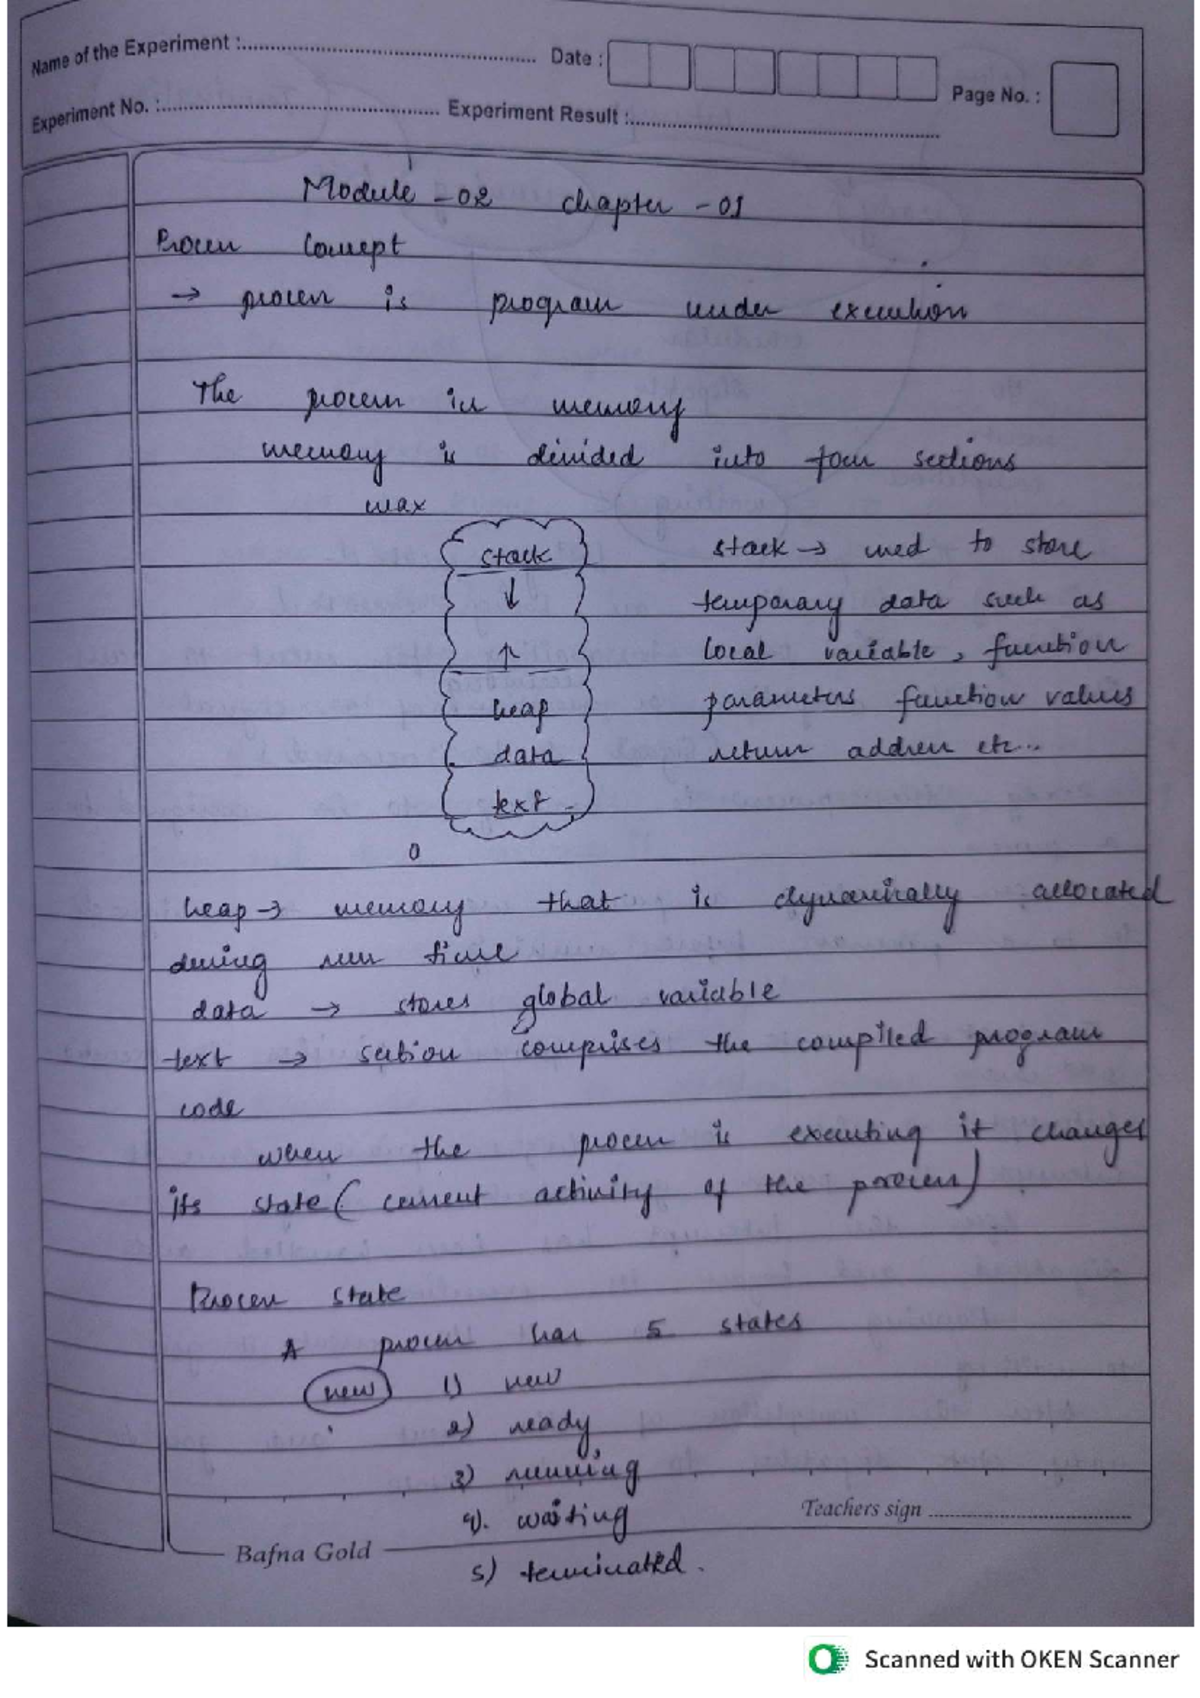 Name of the Experiment : Date :
Page No. :
Experiment No. : Experiment Result :
Module - 02 chapter - 01
Process Concept
→ process is program under execution
The process in memory
memory is divided into four sections
max
stack
↓
↑
heap
data
text
0
stack → used to store
temporary data such as
local variable, function
parameters function values
return address etc...
heap → memory that is dynamically allocated
during run time
data → stores global variable
text → section comprises the compiled program
code
when the process is executing it changes
its state ( current activity of the process)
Process state
A process has 5 states
new 1) new
2) ready
3) running
4). waiting
5) terminated.
Teachers sign
Bafna Gold
Scanned with OKEN Scanner